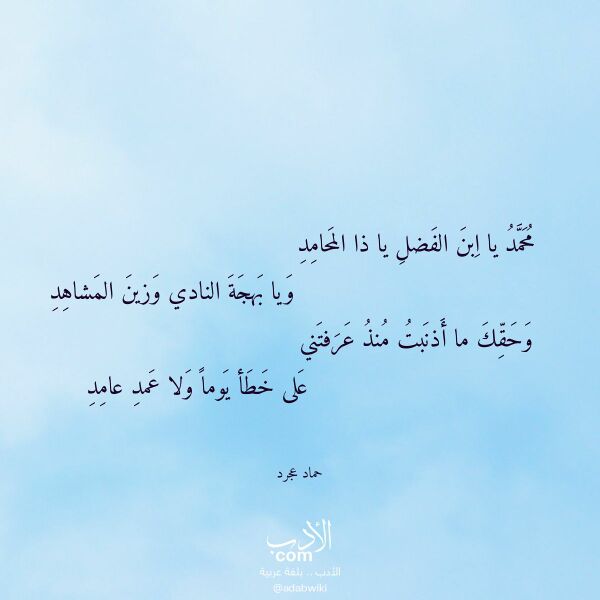 مُحَمَّدُ يا اِبنَ الفَضلِ يا ذا المَحامِدِ
وَيا بَهجَةَ النادي وَزينَ المَشاهِدِ
وَحَقِّكَ ما أَذنَبتُ مُنذُ عَرَفتَني
عَلى خَطَأ يَوماً وَلا عَمدِ عامِدِ
حماد عجرد
الأدب
com
الأدب .. بلغة عربية
@adabwiki